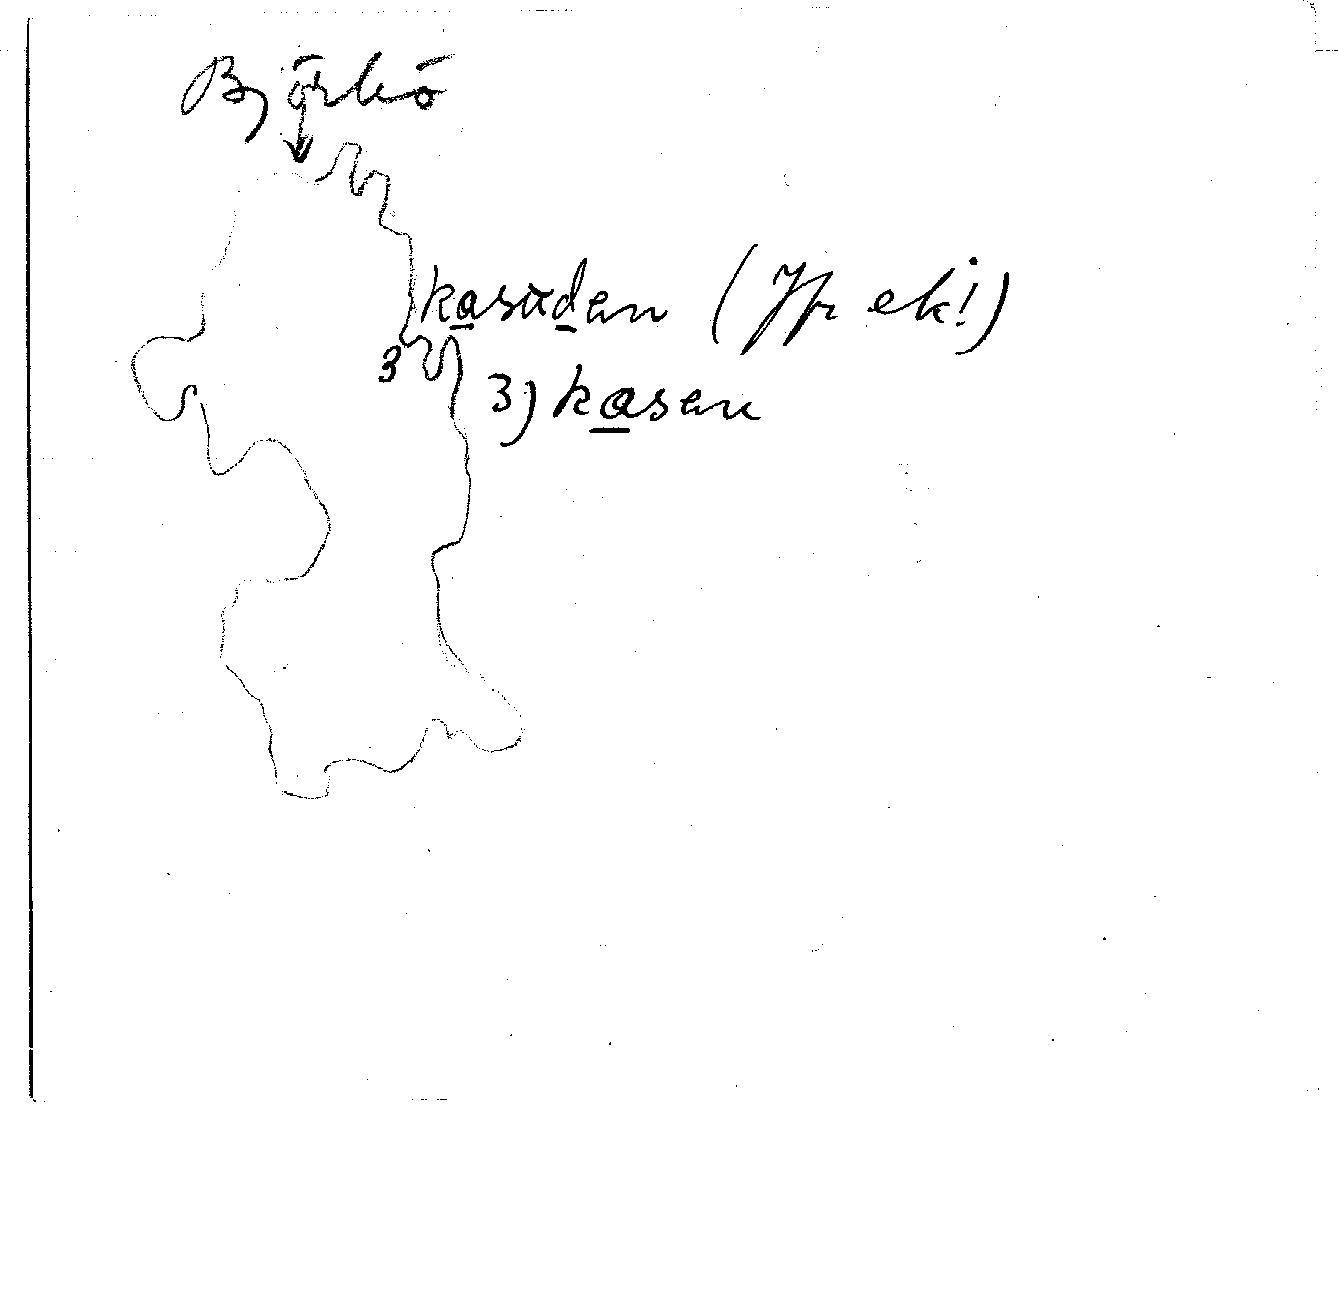 Björkö
kasuden (Jfr ek!)
3
3) kasen